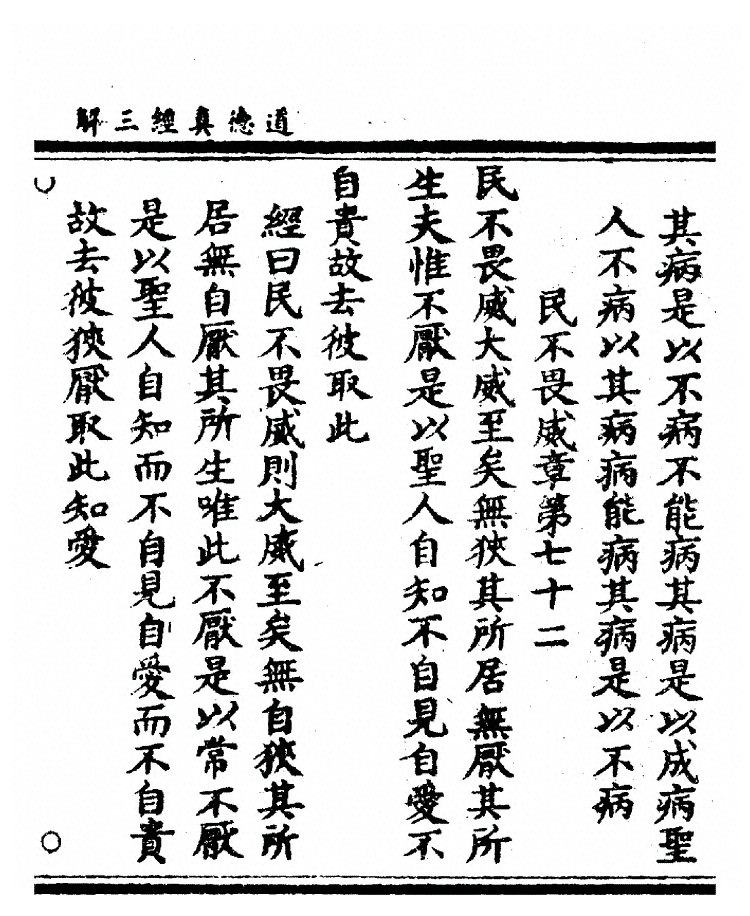 道德真經三解
其病是以不病不能病其病是以成病聖
人不病以其病病能病其病是以不病
民不畏威章第七十二
民不畏威大威至矣無狹其所居無厭其所
生夫惟不厭是以聖人自知不自見自愛不
自貴故去彼取此
經曰民不畏威則大威至矣無自狹其所
居無自厭其所生唯此不厭是以常不厭
是以聖人自知而不自見自愛而不自貴
故去彼狹厭取此知愛